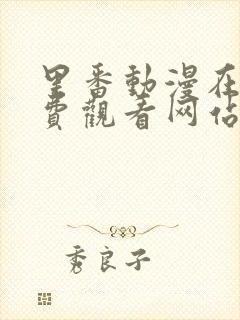 里番動漫在
費觀看网佔
秀良子